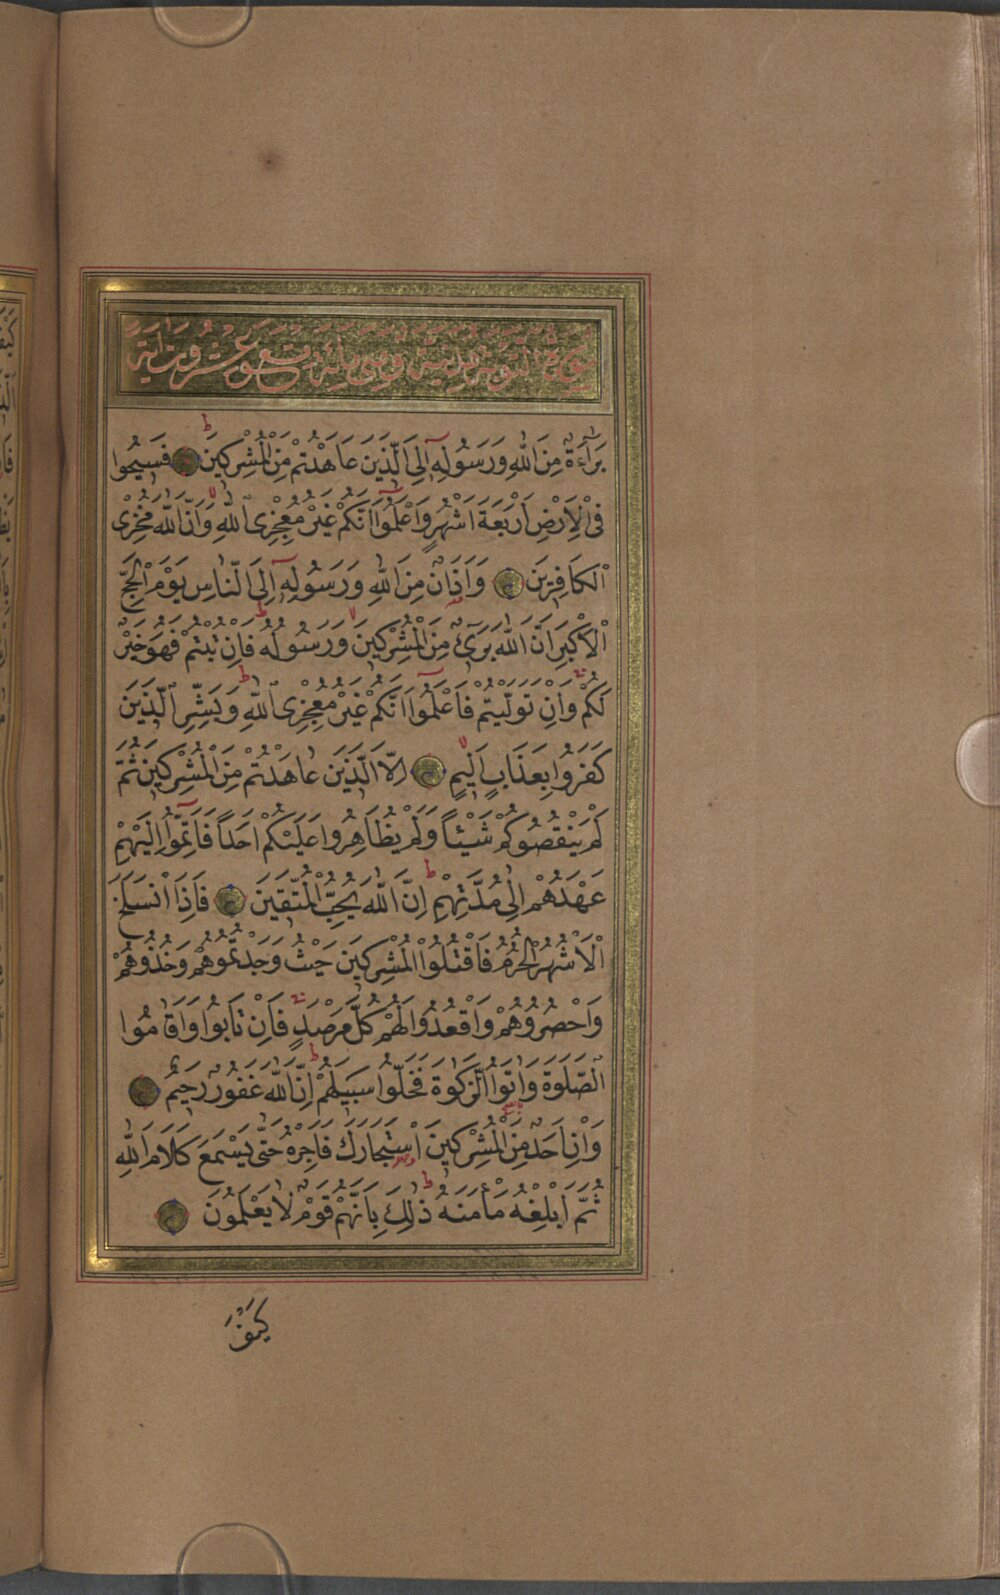 سورة التوبة مدنية وهى مائة وتسع وعشرون اية
بَرَآءَةٌ مِنَ اللّٰهِ وَرَسُولِهٖٓ اِلَى الَّذٖينَ عَاهَدْتُمْ مِنَ الْمُشْرِكٖينَ ط فَسٖيحُوا
فِى الْاَرْضِ اَرْبَعَةَ اَشْهُرٍ وَاعْلَمُٓوا اَنَّكُمْ غَيْرُ مُعْجِزِى اللّٰهِ لا وَاَنَّ اللّٰهَ مُخْزِى
الْكَافِرٖينَ وَاَذَانٌ مِنَ اللّٰهِ وَرَسُولِهٖٓ اِلَى النَّاسِ يَوْمَ الْحَجِّ
الْاَكْبَرِ اَنَّ اللّٰهَ بَرٖىءٌ مِنَ الْمُشْرِكٖينَ لا وَرَسُولُهُ ط فَاِنْ تُبْتُمْ فَهُوَ خَيْرٌ
لَكُمْ وَاِنْ تَوَلَّيْتُمْ فَاعْلَمُٓوا اَنَّكُمْ غَيْرُ مُعْجِزِى اللّٰهِ ط وَبَشِّرِ الَّذٖينَ
كَفَرُوا بِعَذَابٍ اَلٖيمٍ لا اِلَّا الَّذٖينَ عَاهَدْتُمْ مِنَ الْمُشْرِكٖينَ ثُمَّ
لَمْ يَنْقُصُوكُمْ شَيْئًا وَلَمْ يُظَاهِرُوا عَلَيْكُمْ اَحَدًا فَاَتِمُّٓوا اِلَيْهِمْ
عَهْدَهُمْ اِلٰى مُدَّتِهِمْ ط اِنَّ اللّٰهَ يُحِبُّ الْمُتَّقٖينَ فَاِذَا انْسَلَخَ
الْاَشْهُرُ الْحُرُمُ فَاقْتُلُوا الْمُشْرِكٖينَ حَيْثُ وَجَدْتُمُوهُمْ وَخُذُوهُمْ
وَاحْصُرُوهُمْ وَاقْعُدُوا لَهُمْ كُلَّ مَرْصَدٍ فَاِنْ تَابُوا وَاَقَامُوا
الصَّلٰوةَ وَاٰتَوُا الزَّكٰوةَ فَخَلُّوا سَبٖيلَهُمْ ط اِنَّ اللّٰهَ غَفُورٌ رَحٖيمٌ
وَاِنْ اَحَدٌ مِنَ الْمُشْرِكٖينَ اسْتَجَارَكَ فَاَجِرْهُ حَتّٰى يَسْمَعَ كَلَامَ اللّٰهِ
ثُمَّ اَبْلِغْهُ مَأْمَنَهُ ط ذٰلِكَ بِاَنَّهُمْ قَوْمٌ لَا يَعْلَمُونَ
كَيْفَ